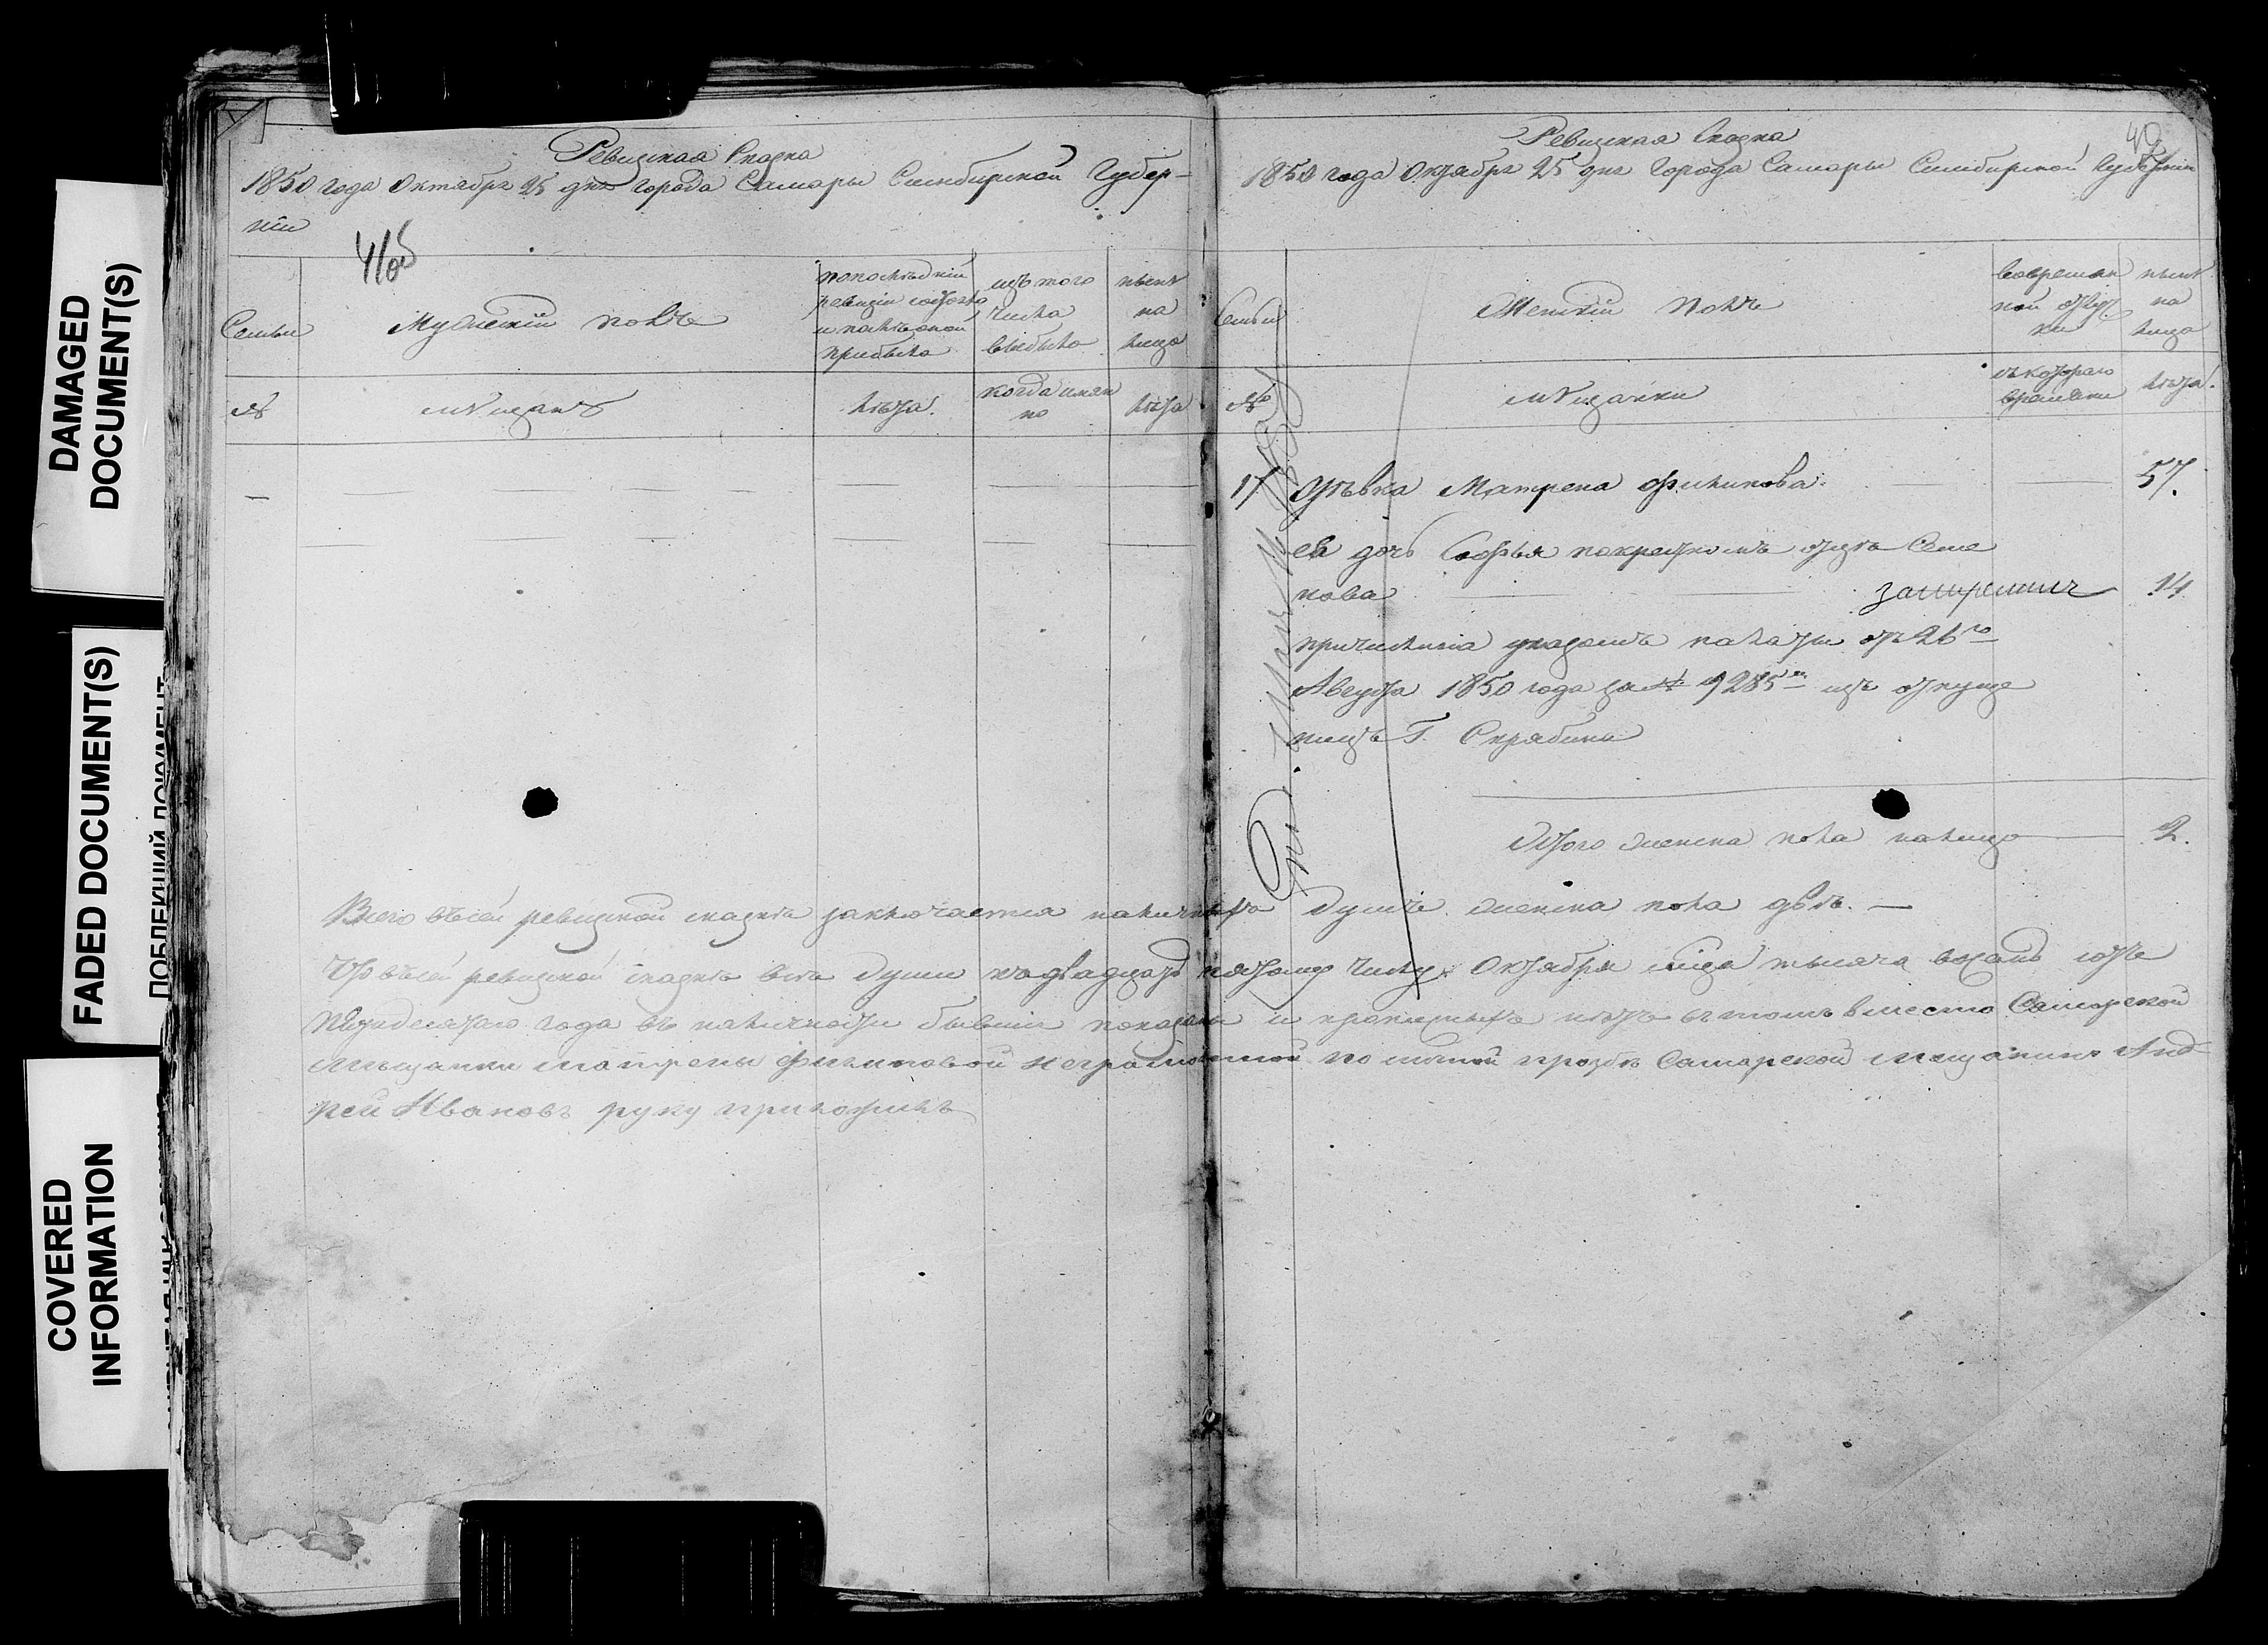 DAMAGED
DOCUMENT(S)
FADED DOCUMENT(S)
COVERED
INFORMATION
Ревизская Сказка
1850 года Октября 25 дня города Самары Симбирской Губер-
нiи
Семьи
Мужескiй полъ
по последней
ревизiи состояло
и после оной
прибыло
изъ того
числа
выбыло
ныне
на
лицо
№
мѣщане
лѣта.
когда имян
но
лѣта
Ревизская Сказка
40
1850 года Октября 25 дня Города Самары Симбирской Губернiи
Семьи
Женскiй полъ
во времян
ной отлуч
ки
ныне
на
лицо
№
мѣщанки
съ котораго
времени
лѣта.
17 дѣвка Матрена Филипова. 57.
ея дочь Софья по крестномъ отцѣ Семе
нова 14
причислена указомъ палаты отъ 26го
Августа 1850 года за № 9285м изъ отпуще
ницъ Г. Скрябина
Итого женска пола на лицо 2.
Всего въ сей ревизской сказке заключается наличныхъ душъ женска пола двѣ. —
Что въ сей ревизской сказке все души къ двадцать пятому числу Октября мѣсяца тысяча восемь сотъ
пятидесятаго года въ наличности бывшiе показаны и прописныхъ нѣтъ въ томъ вместо Самарской
мѣщанки Матрены Филиповой неграмотной по личной прозбе Самарской мещанинъ Анд-
рей Ивановъ руку приложилъ